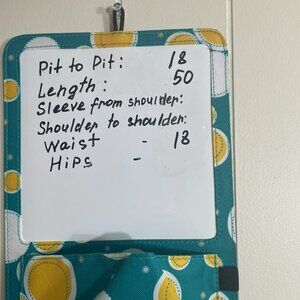 Pit to Pit: 18
Length: 50
Sleeve from shoulder:
Shoulder to shoulder:
Waist - 18
Hips -